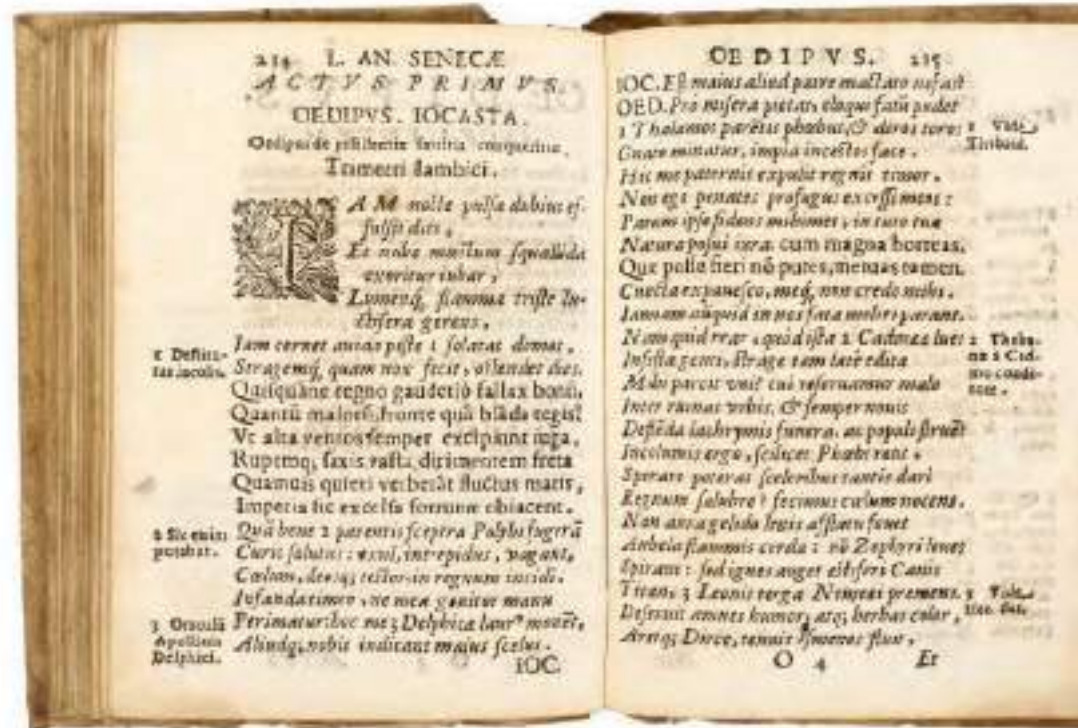 214 L. AN. SENECÆ
ACTVS PRIMVS.
OEDIPVS. IOCASTA.
Oedipus de pestilentiæ
Trimetri Iambici.
IAM nocte pulsa dubius ef-
fulsit dies,
Et nube squallida
exoritur iubar,
Lumenq; flamma triste lu-
ctifera gerens,
Iam cernet auras peste 1 solatas domos,
1 Desti-
tas incolis.
Stragemq; quam nox fecit, ostendet dies.
Quisquāne regno gaudet? ô fallax bonū,
Quantū malorū fronte quā blāda tegis!
Vt alta ventos semper excipiunt iuga,
Rupemq; saxis vasta dirimentem freta
Quamuis quieti verberāt fluctus maris,
Imperia sic excelsa fortunæ obiacent.
Quā bene 2 parentis sceptra Polybi fugerā
2 Sic enim
putabat.
Curis solutus: exul, intrepidus, vagans,
Cœlum, deosq; testor in regnum incidi.
Infanda timeo, ne mea genitor manu
Perimatur: hoc me 3 Delphicæ laurꝰ monēt,
3 Oraculū
Apollinis
Delphici.
Aliudq; nobis indicant maius scelus.
IOC.
OEDIPVS. 215
IOC. Est maius aliud patre mactato nefas?
OED. Pro misera pietas, eloqui fatū pudet
1 Thalamos parētis phœbus, & diros toros
Gnato minatur, impia incestos face.
Hic me paternis expulit regnis timor.
Non ego penates profugus excessi meos:
Parum ipse fidens mihimet, in tuto tua
Natura posui iura. cum magna horreas,
Que posse fieri nō putes, metuas tamen.
Cuncta expauesco, meq; non credo mihi.
Iamiam aliquid in nos fata moliri parant.
Nam quid rear, quòd ista 2 Cadmea lues
2 Theba-
na à Cad-
mo condi-
tore.
Infesta genti, strage tam latè edita
Mihi parcit vni? cui reseruamur malo
Inter ruinas vrbis, & semper nouis
Deflēda lachrymis funera, ac populi struē?
Incolumis ergo, scilicet Phœbi reus.
Sperare poteras sceleribus tantis dari
Regnum salubre? fecimus cœlum nocens.
Non aura gelido lenis afflatu fouet
Anhela flammis corda: nō Zephyri leues
Spirant: sed ignes auget æstiferi Canis
Titan, 3 Leonis terga Nemeæi premens.
Deseruit amnes humor, atq; herbas color,
Aretq; Dirce, tenuis Ismenos fluit,
O 4 Et